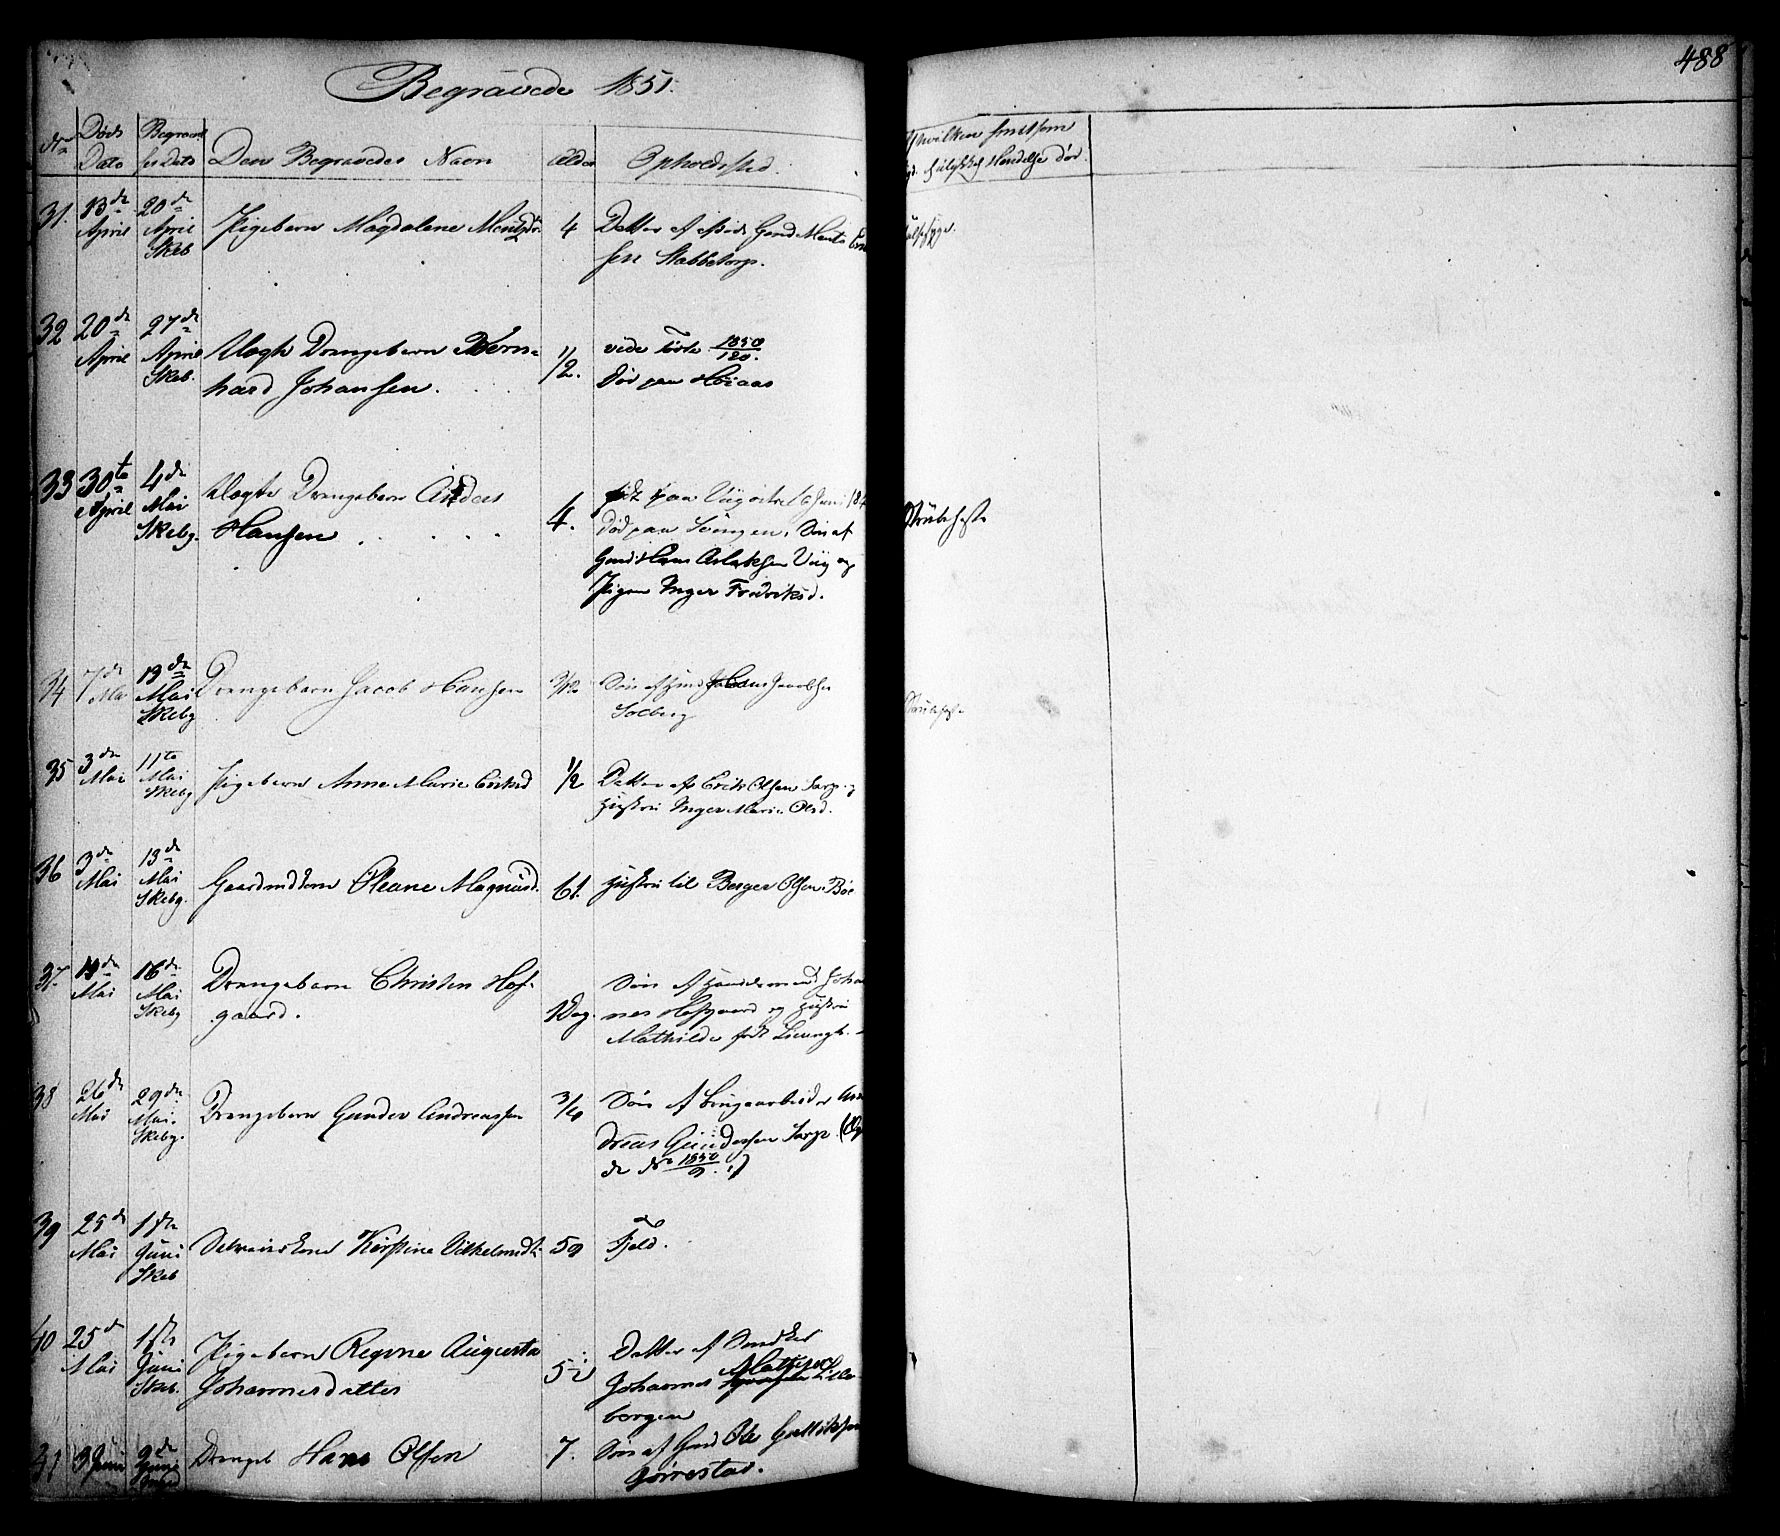 488
Begravede 1851.
Nr Døds Dato Begravel ses Dato Den Begravedes Navn Alder Opholdssted.
Hvilken smitsom
Sygd. ulykkel Hendelse død.
31. 13de April 20de April Skeb Pigebarn Magdalene Mentzdr. 4 Datter af Gaard Mentz
sen Stabbetorp.
32 20de April 27de April Skeb. Uægte Drengebarn Bern-
hard Johansen. 1/2. vide Føde 1850/120.
død paa Höiaas
33 30te April 4de Mai Skebg. Uægte Drengebarn Anders
Hansen 4. født paa Viig Juni
død paa . Søn af
Gmd: Hans Aslaksen Viig og
Pigen Inger Fredriksd.
Strubehoste
34 7de Mai 13de Mai Skebg Drengebarn Jacob Hansen 3/12 Søn af Hans Jacobsen
Solberg
Strubehoste
35 3de Mai 11te Mai Skebg Pigebarn Anne Marie Eriksd 1/2 Datter af Erik Olsen Sarp og
Hustru Inger Marie Olsd.
36 3de Mai 13de Mai Skebg. Gaardmdkone Oleane Magnusd. 61. Hustru til Berger Olsen Bøe
37. 14de Mai 16de Mai Skebg Drengebarn Christen Hof-
gaard. 1 Dag. Søn af Handelsmand Johan
nes Hofgaard og Hustru
Mathilde født
38 26de Mai 29de Mai. Skebg. Drengebarn Gunder Andreassen 3/4 Søn af Brugsarbeider An
dreas Gundersen Sarp.
de No 1850/9.
39 25de Mai 1ste Juni Skeb Kirstine Vilhelmsdtr 59 Fjeld.
40 25de Mai 1ste Juni Skeb. Pigebarn Regine Augusta
Johannesdatter 5 Datter af Snedker
Johannes Mathisen Lille
borgen
41 3 Juni 9de Juni Drengeb Hans Olsen 7. Søn af Gmd Ole
Gørrestad.